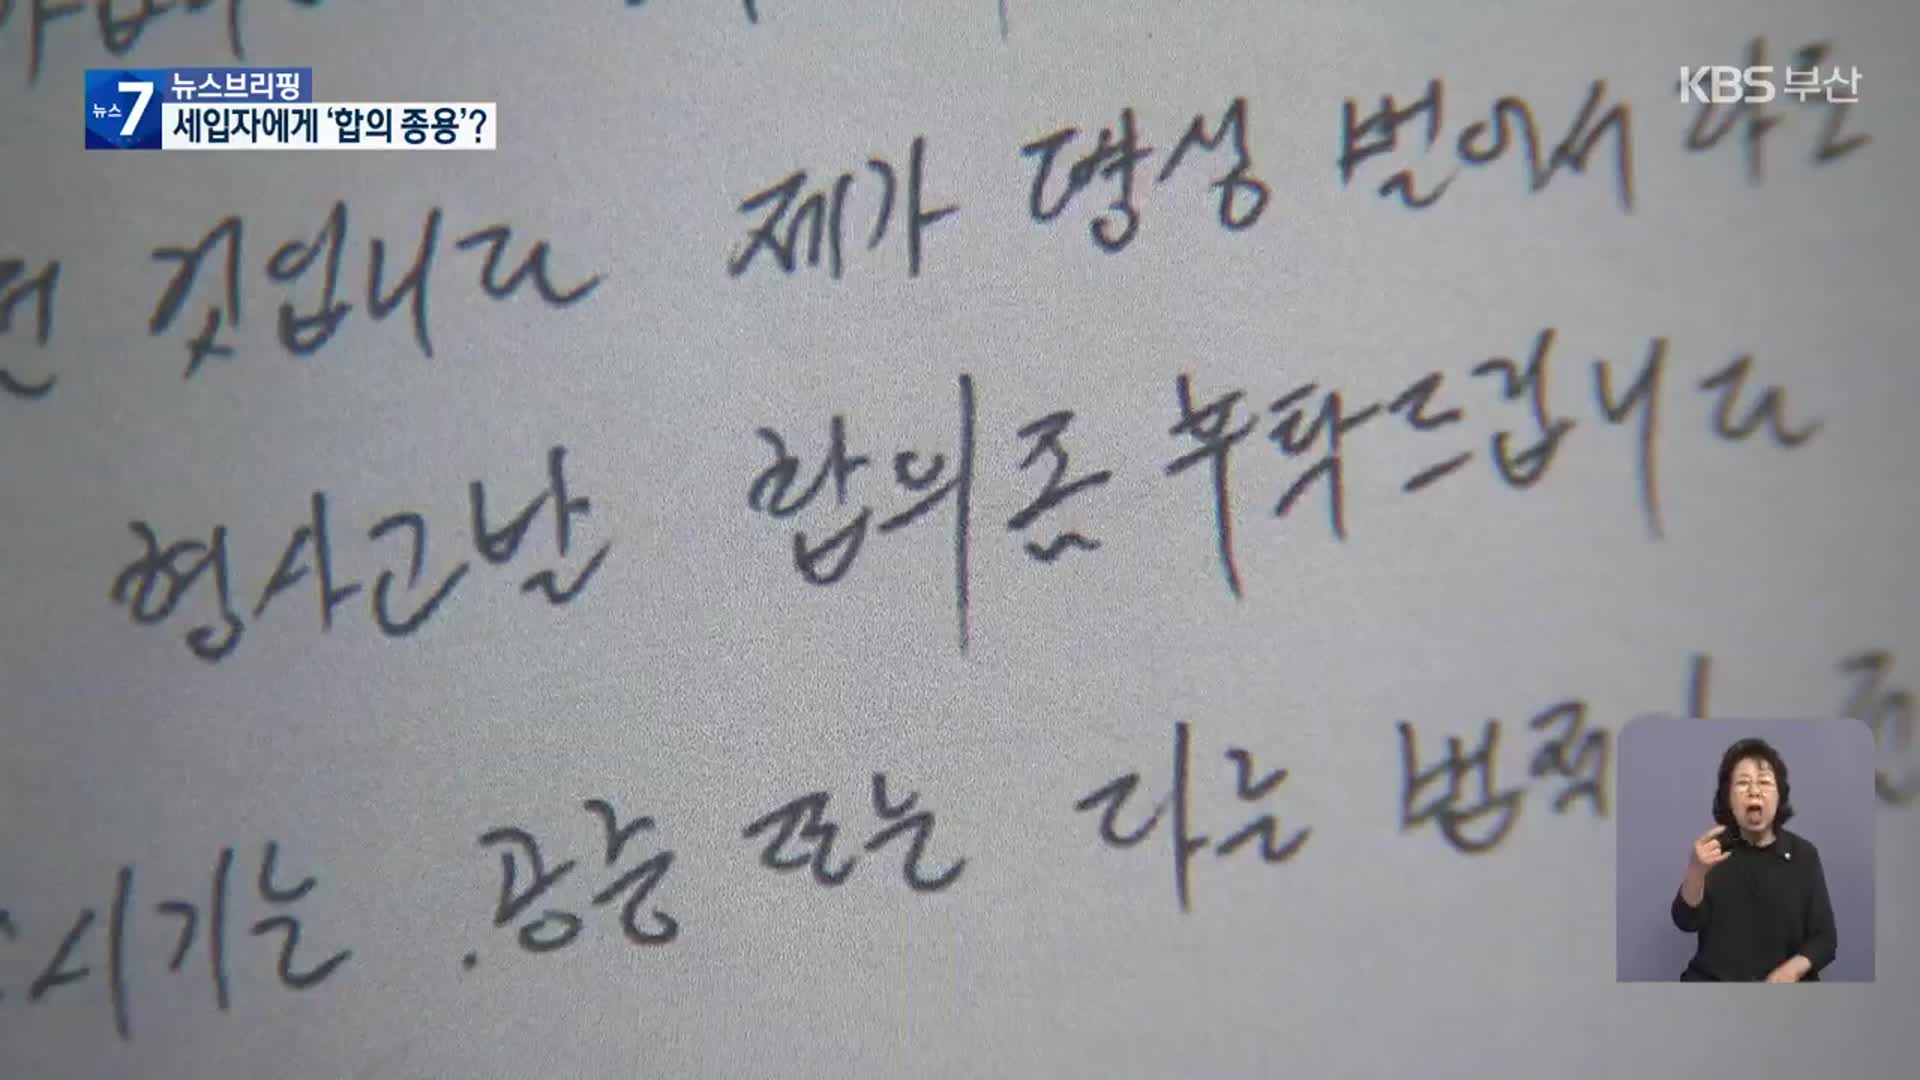 뉴스7 뉴스브리핑
세입자에게 ‘합의 종용’?
KBS 부산
것입니다 제가 평생 벌어서라도
형사고발 합의좀 부탁드립니다
시기는 . 공증 또는 다른 법적